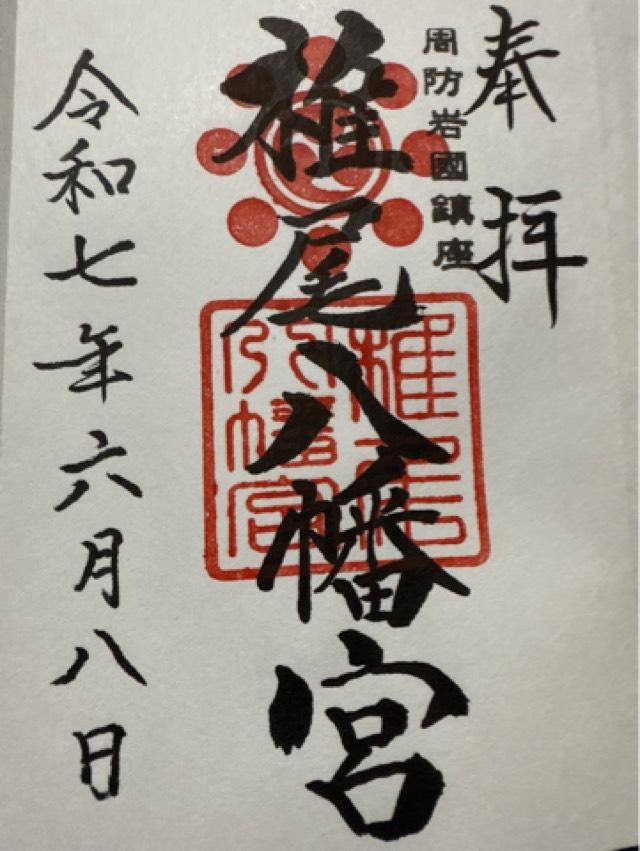 奉拝
周防岩國鎮座
椎尾八幡宮
椎尾
八幡宮
令和七年六月八日